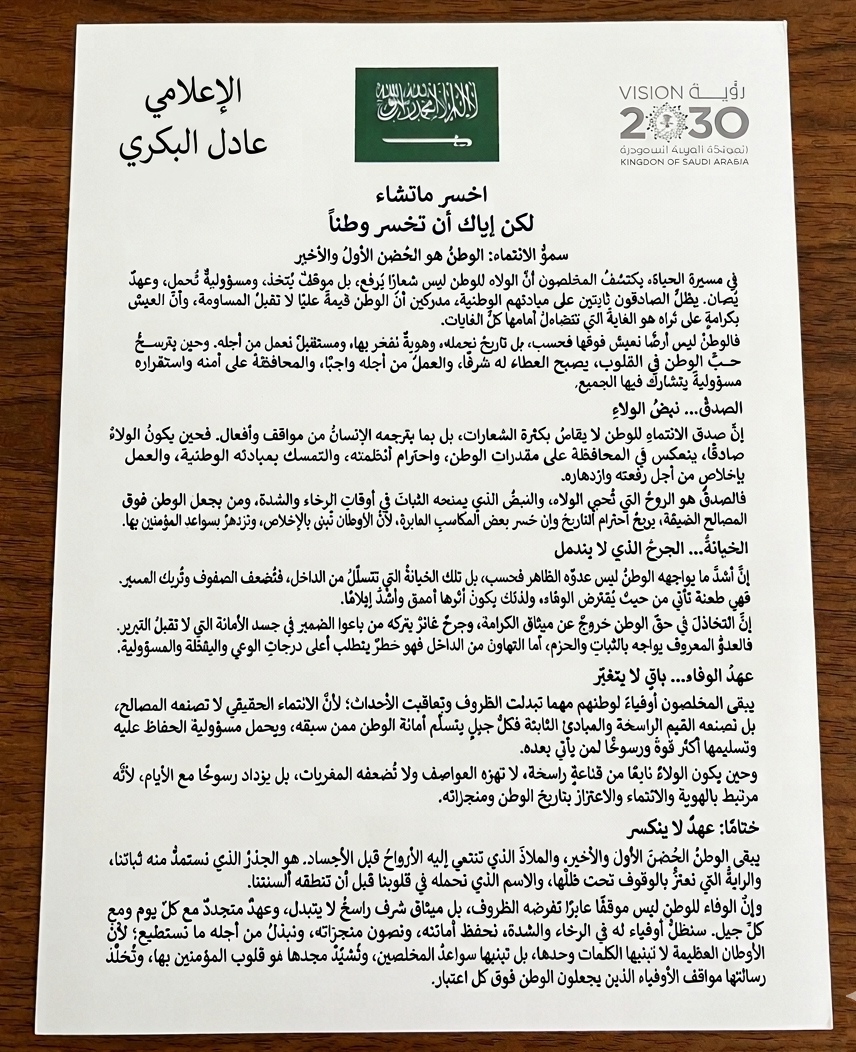 الإعلامي
عادل البكري
لا إله إلا الله محمد رسول الله
رؤيـــة VISION
2030
المملكة العربية السعودية
KINGDOM OF SAUDI ARABIA
اخسر ماتشاء
لكن إياك أن تخسر وطناً
سموُّ الانتماء: الوطنُ هو الحُضن الأولُ والأخير
في مسيرة الحياة، يكتشفُ المخلصون أنَّ الولاء للوطن ليس شعارًا يُرفع، بل موقفٌ يُتخذ، ومسؤوليةٌ تُحمل، وعهدٌ
يُصان. يظلُّ الصادقون ثابتين على مبادئهم الوطنية، مدركين أنَّ الوطن قيمةً عليًا لا تقبلُ المساومة، وأنَّ العيش
بكرامةٍ على ثراه هو الغايةُ التي تتضاءلُ أمامها كلُّ الغايات.
فالوطنُ ليس أرضًا نعيشُ فوقها فحسب، بل تاريخٌ نحمله، وهويةٌ نفخر بها، ومستقبلٌ نعمل من أجله. وحين يترســخُ
حــبُّ الوطن في القلوب، يصبح العطاء له شرفًا، والعملُ من أجله واجبًا، والمحافظةُ على أمنه واستقراره
مسؤوليةً يتشاركُ فيها الجميع.
الصدقُ... نبضُ الولاءِ
إنَّ صدق الانتماءِ للوطن لا يقاسُ بكثرة الشعارات، بل بما يترجمه الإنسانُ من مواقف وأفعال. فحين يكونُ الولاءُ
صادقًا، ينعكس في المحافظة على مقدرات الوطن، واحترام أنظمته، والتمسك بمبادئه الوطنية، والعمل
بإخلاصٍ من أجل رفعته وازدهاره.
فالصدقُ هو الروحُ التي تُحيي الولاء، والنبضُ الذي يمنحه الثباتَ في أوقاتِ الرخاء والشدة، ومن يجعل الوطن فوق
المصالح الضيقة، يربحُ احترام التاريخ وإن خسر بعض المكاسبِ العابرة، لأنَّ الأوطان تُبنى بالإخلاص، وتزدهرُ بسواعد المؤمنين بها.
الخيانةُ... الجرحُ الذي لا يندمل
إنَّ أشدَّ ما يواجهه الوطنُ ليس عدوّه الظاهر فحسب، بل تلك الخيانةُ التي تتسلّلُ من الداخل، فتُضعف الصفوف وتُربك المسير.
فهي طعنة تأتي من حيثُ يُفترض الوفاء، ولذلك يكونُ أثرها أعمق وأشدُّ إيلامًا.
إنَّ التخاذلَ في حقِّ الوطن خروجٌ عن ميثاق الكرامة، وجرحٌ غائرٌ يتركه من باعوا الضمير في جسد الأمانة التي لا تقبلُ التبرير.
فالعدوُّ المعروف يواجه بالثباتِ والحزم، أما التهاون من الداخل فهو خطرٌ يتطلب أعلى درجاتِ الوعي واليقظة والمسؤولية.
عهدُ الوفاء... باقٍ لا يتغيّر
يبقى المخلصون أوفياءَ لوطنهم مهما تبدلت الظروف وتعاقبت الأحداث؛ لأنَّ الانتماء الحقيقي لا تصنعه المصالح،
بل تصنعه القيم الراسخة والمبادئ الثابتة فكلُّ جيلٍ يتسلّم أمانة الوطن ممن سبقه، ويحمل مسؤولية الحفاظ عليه
وتسليمها أكثر قوةً ورسوخًا لمن يأتي بعده.
وحين يكون الولاءُ نابعًا من قناعةٍ راسخة، لا تهزه العواصف ولا تُضعفه المغريات، بل يزداد رسوخًا مع الأيام، لأنَّه
مرتبط بالهوية والانتماء والاعتزاز بتاريخ الوطن ومنجزاته.
ختامًا: عهدٌ لا ينكسر
يبقى الوطنُ الحُضنَ الأولَ والأخير، والملاذَ الذي تنتمي إليه الأرواحُ قبل الأجساد. هو الجذرُ الذي نستمدُّ منه ثباتنا،
والرايةُ التي نعتزُّ بالوقوف تحت ظلّها، والاسم الذي نحمله في قلوبنا قبل أن تنطقه ألسنتنا.
وإنَّ الوفاء للوطن ليس موقفًا عابرًا تفرضه الظروف، بل ميثاق شرف راسخٌ لا يتبدل، وعهدٌ متجددٌ مع كلّ يوم ومع
كلِّ جيل. سنظلُّ أوفياء له في الرخاء والشدة، نحفظ أمانته، ونصون منجزاته، ونبذلُ من أجله ما نستطيع؛ لأنَّ
الأوطان العظيمة لا تبنيها الكلمات وحدها، بل تبنيها سواعدُ المخلصين، وتُشيّدُ مجدها قلوب المؤمنين بها، وتُخلّد
رسالتها مواقف الأوفياء الذين يجعلون الوطن فوق كل اعتبار.